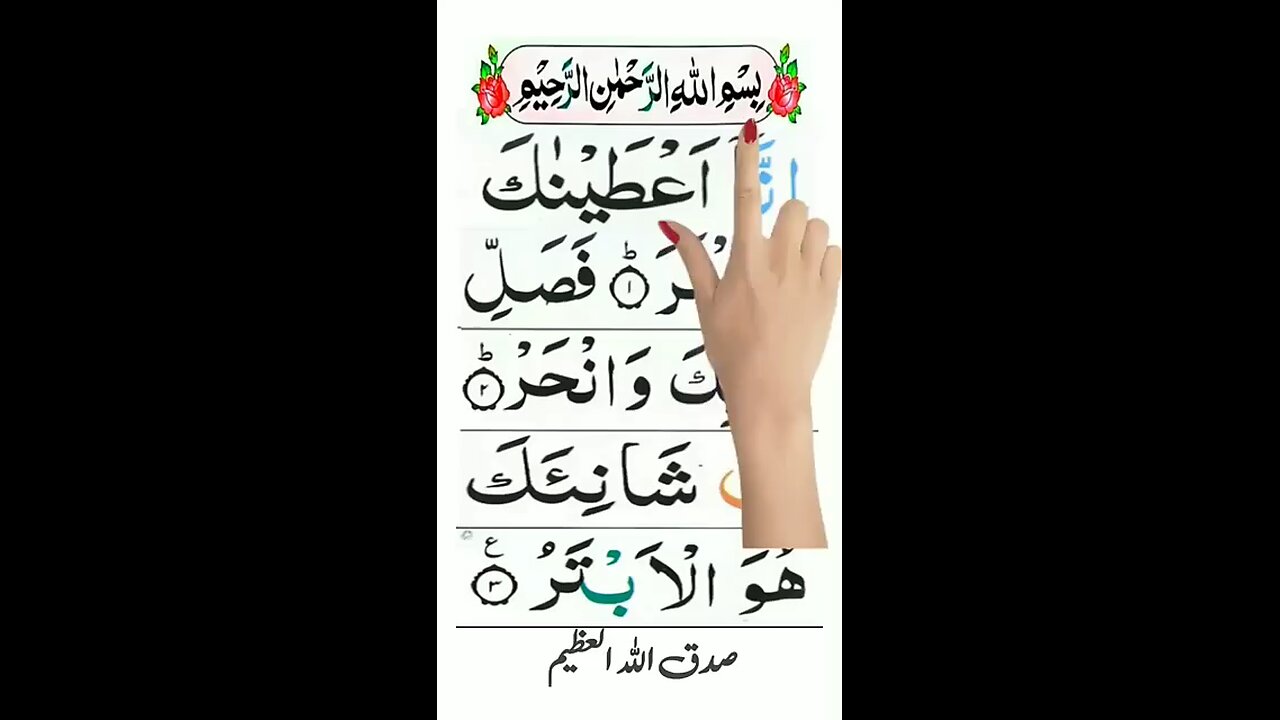 بِسْمِ اللهِ الرَّحْمٰنِ الرَّحِيْمِ
اَعْطَيْنٰكَ
۱ فَصَلِّ
وَانْحَرْ ۲
شَانِئَكَ
هُوَ الْاَبْتَرُ ۳ ع
صدق الله العظيم